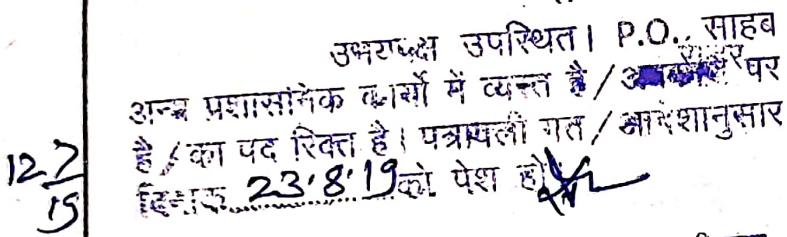 उभयपक्ष उपस्थित। P.O., साहब
अन्य प्रशासनिक कार्यो में व्यस्त है / पर
है / का पद रिक्त है। पत्रावली गत / आदेशानुसार
12 7/19 दिनांक........23.8.19को पेश हो